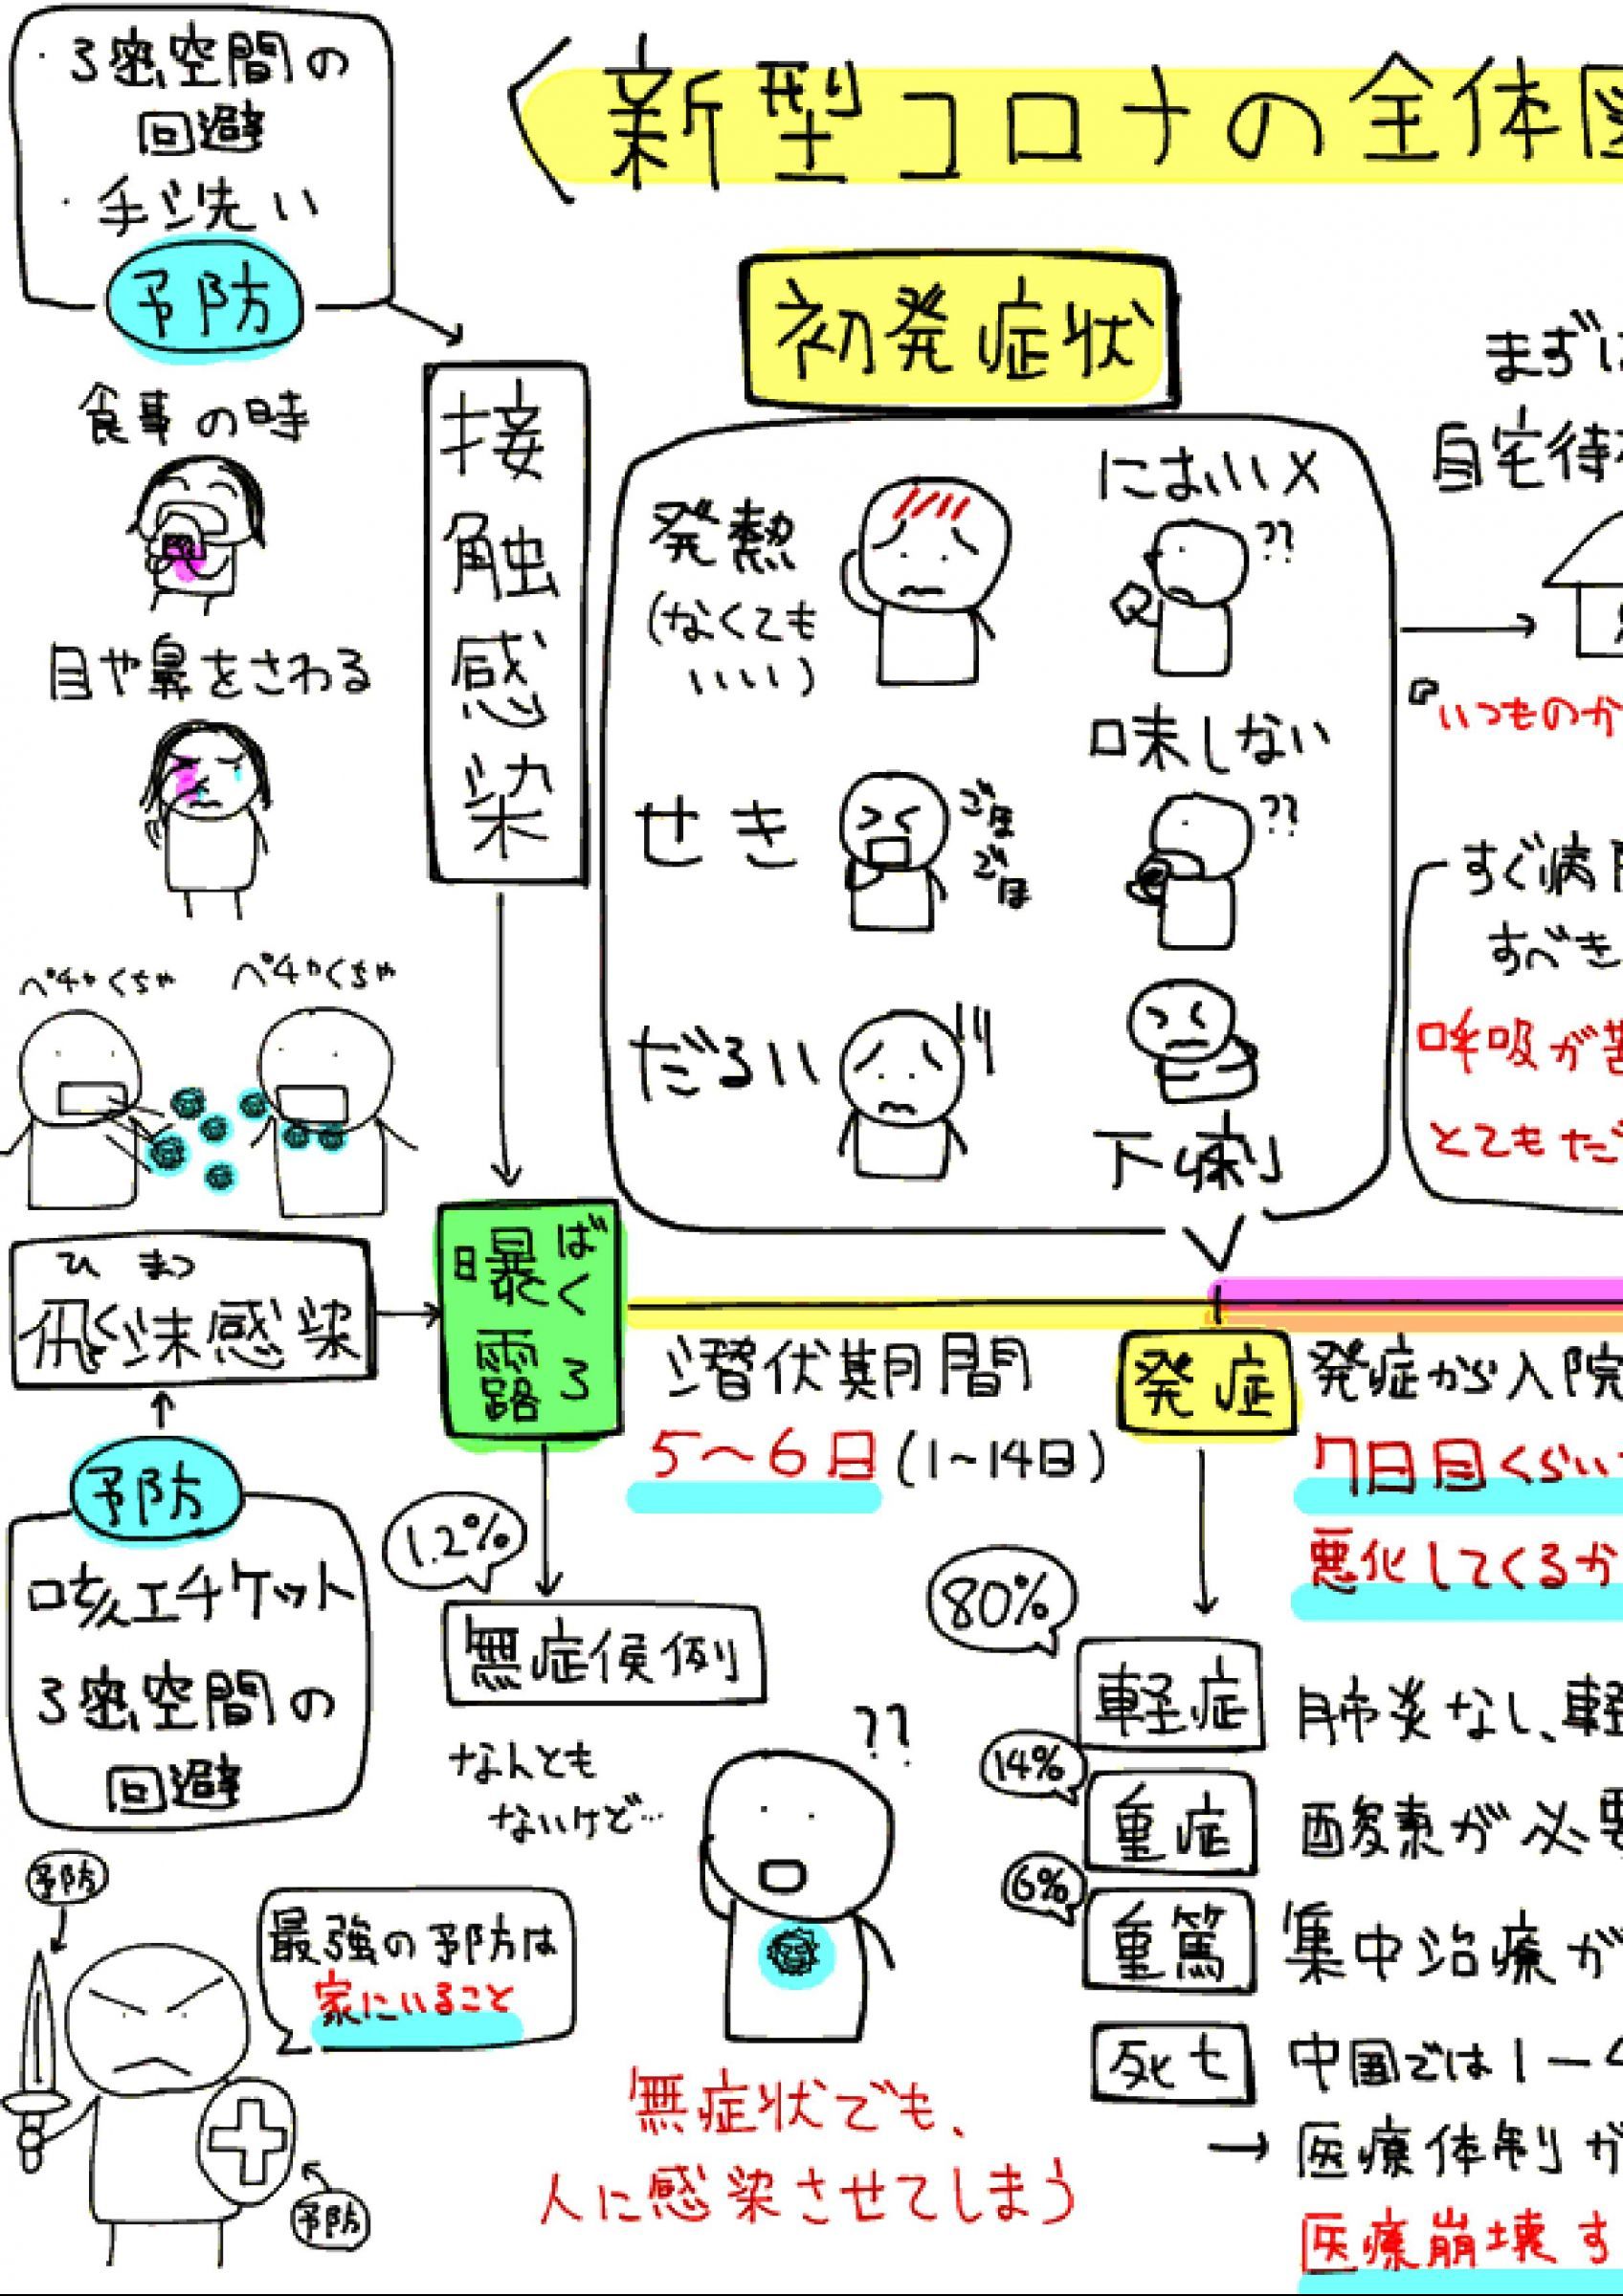 ・3密空間の
回避
・手洗い
予防
新型コロナの全体図
食事の時
目や鼻をさわる
接触感染
初発症状
発熱
(なくても
いい)
にほい×
??
せき
ごほ
ごほ
味しない
??
だるい
下痢
まずは
自宅待
『いつものか
すぐ病
すべき
呼吸が苦
とてもだ
ペチャくちゃ
ペチャくちゃ
ひまつ
飛沫感染
ばくろ
曝露
予防
咳エチケット
3密空間の
回避
潜伏期間
5～6日(1~14日)
発症
発症から入院
7日目くらい
悪化してくるか
1.2%
無症候例
なんとも
ないけど…
??
無症状でも、
人に感染させてしまう
80%
軽症
肺炎なし、軽
14%
重症
酸素が必要
6%
重篤
集中治療が
死亡
中国では1－
→医療体制が
医療崩壊す
予防
最強の予防は
家にいること
予防